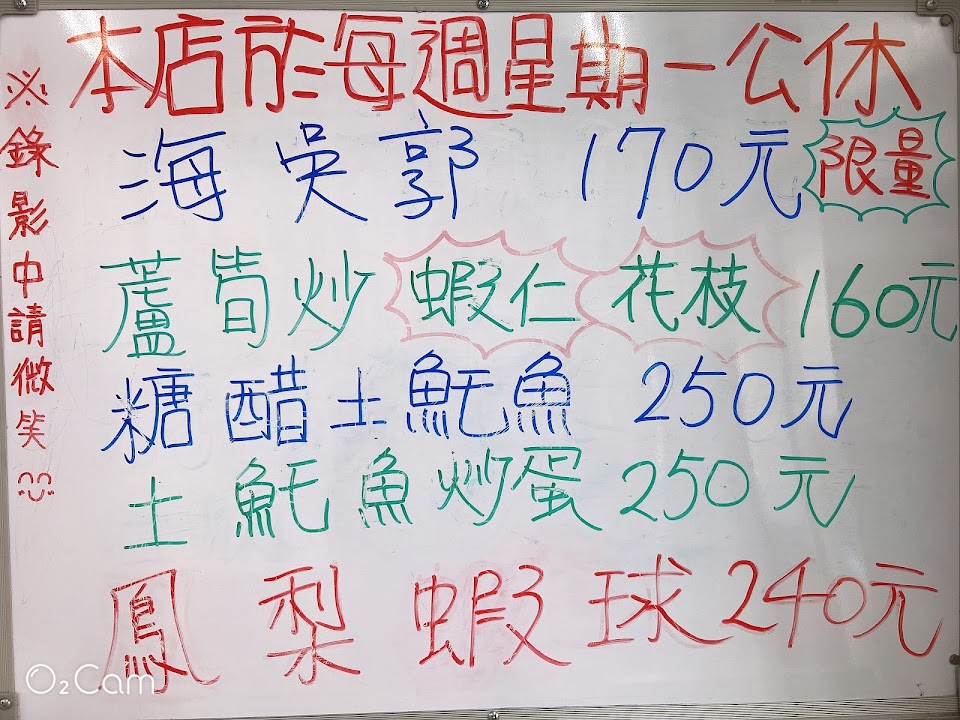 本店於每週星期一公休
※錄影中請微笑
海吳郭 170元 限量
蘆筍炒 蝦仁 花枝 160元
糖醋土魠魚 250元
土魠魚炒蛋 250元
鳳梨蝦球 240元
O2Cam